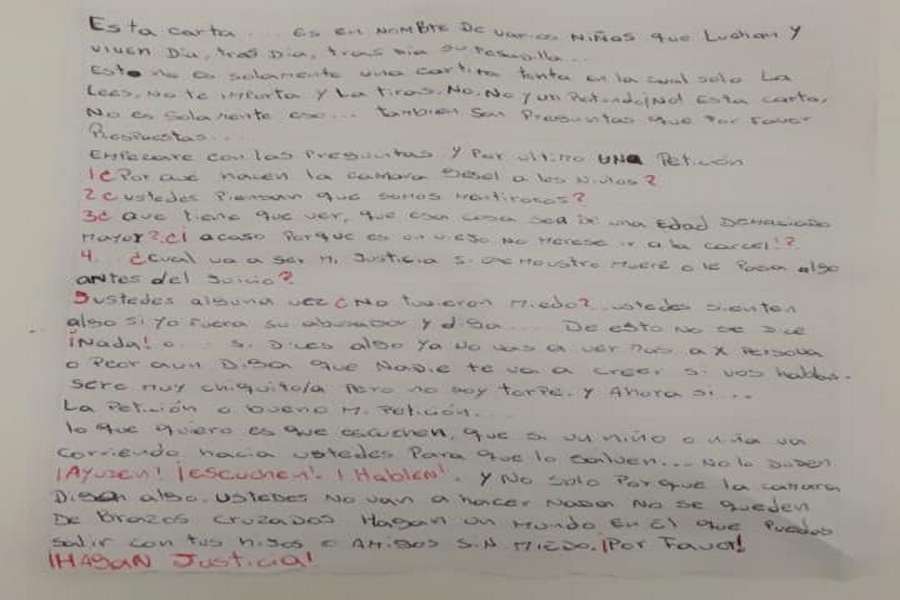 Esta carta... es en NOMBRE De varios NIÑOS que Luchan y
viven Día, tras Día, tras Día su Pesadilla...
Esto no es solamente una cartita tonta en la cual solo La
Lees, No te importa y La tiras. No, No y un Rotundo ¡No! Esta carta,
No es solamente eso... también son Preguntas que por favor
Respuestas...
EMPezare con las Preguntas y Por ultimo UNA Petición
1¿Por que hacen la camara Gesel a los Niños?
2¿ustedes Piensan que somos mentirosos?
3¿ que tiene que ver, que esa cosa sea de una EDAD DEMACIADO
Mayor? ¿¡ acaso porque es un viejo no merese ir a la carcel!?
4. ¿cual va a ser Mi Justicia si ese Moustro Muere o le Pasa algo
antes del Juicio?
5 ustedes alguna vez ¿No tuvieron Miedo? ustedes sienten
algo si yo fuera su abusador y diga... De esto no se Dice
¡Nada! o... si Dices algo ya No vas a ver mas a X Persona
o Peor aun Diga que Nadie te va a creer si vos hablas.
sere muy chiquito/a Pero no soy torpe. y Ahora si...
La Petición o bueno Mi Petición...
lo que quiero es que escuchen, que si un niño o niña va
corriendo hacia ustedes Para que lo salven... No lo Duden
¡Ayuden! ¡escuchen! ¡Hablen!. y No solo Porque la camara
Digan algo. ustedes No van a hacer Nada No se queden
De Brazos cruzados Hagan un Mundo En El que Puedas
salir con tus hijos o AMigos SiN MieDo. ¡Por Favor!
¡HAGAN Justicia!